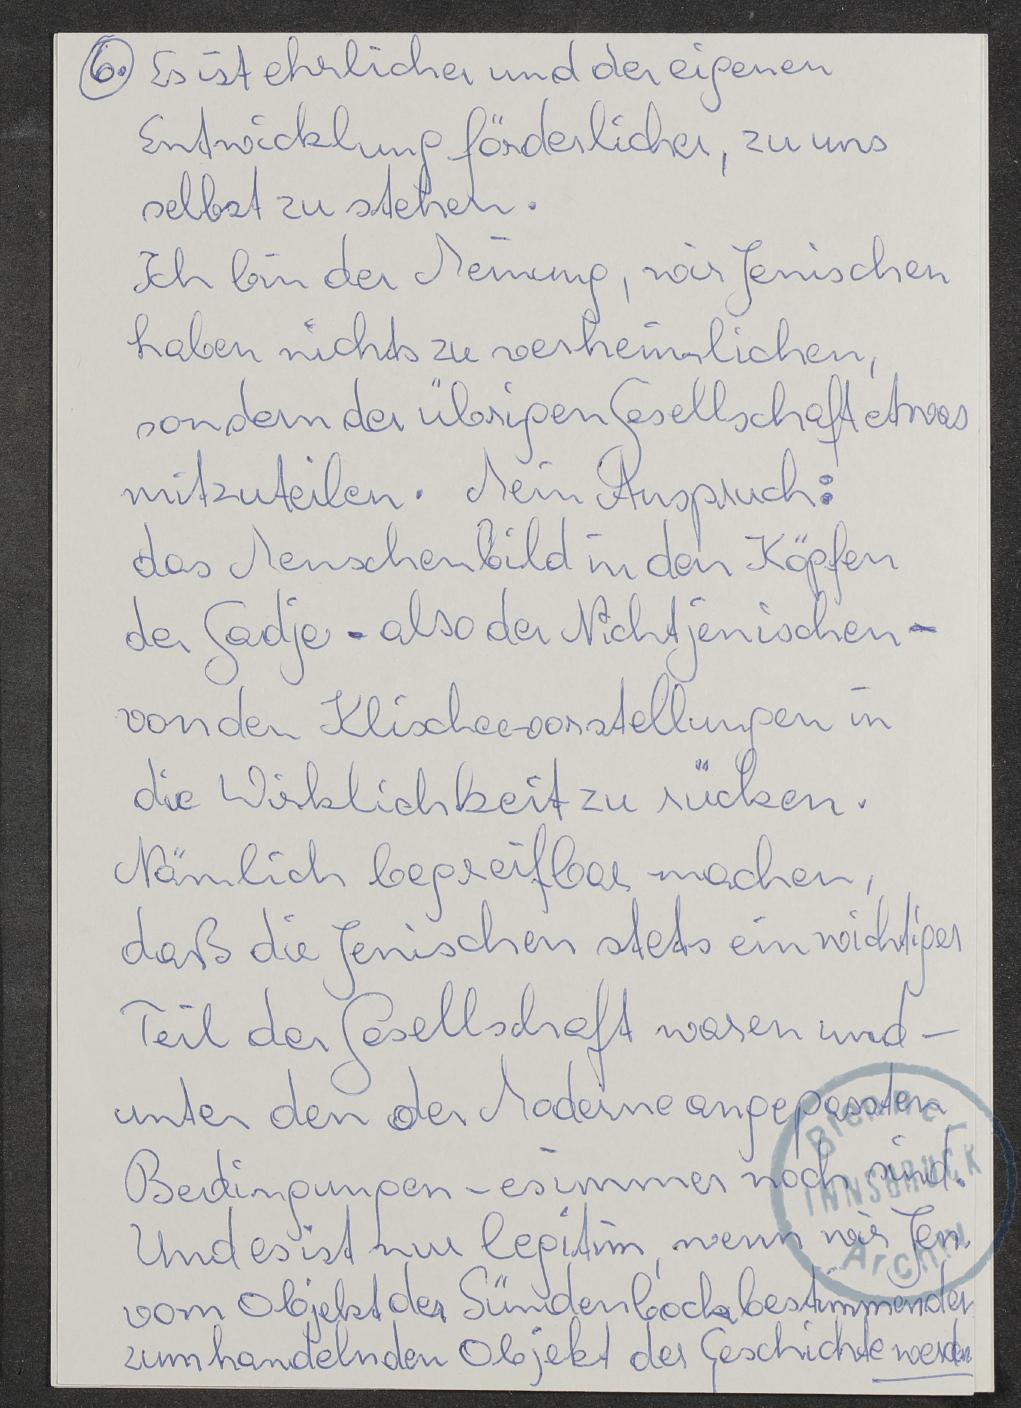 6. Es ist ehrlicher und der eigenen
Entwicklung förderlicher, zu uns
selbst zu stehen.
Ich bin der Meinung, wir Jenischen
haben nichts zu verheimlichen,
sondern der übrigen Gesellschaft etwas
mitzuteilen. Mein Anspruch:
das Menschenbild in den Köpfen
der Gadje - also der Nichtjenischen -
von den Klischeevorstellungen in
die Wirklichkeit zu rücken.
Nämlich begreifbar machen,
daß die Jenischen stets ein wichtiger
Teil der Gesellschaft waren und -
unter den der Moderne angepassten
Bedingungen - es immer noch sind.
Und es ist nur legitim, wenn wir Jen.
vom Objekt der Sündenbockbestimmenden
zum handelnden Objekt der Geschichte werden
Brenner-
INNSBRUCK
Archiv